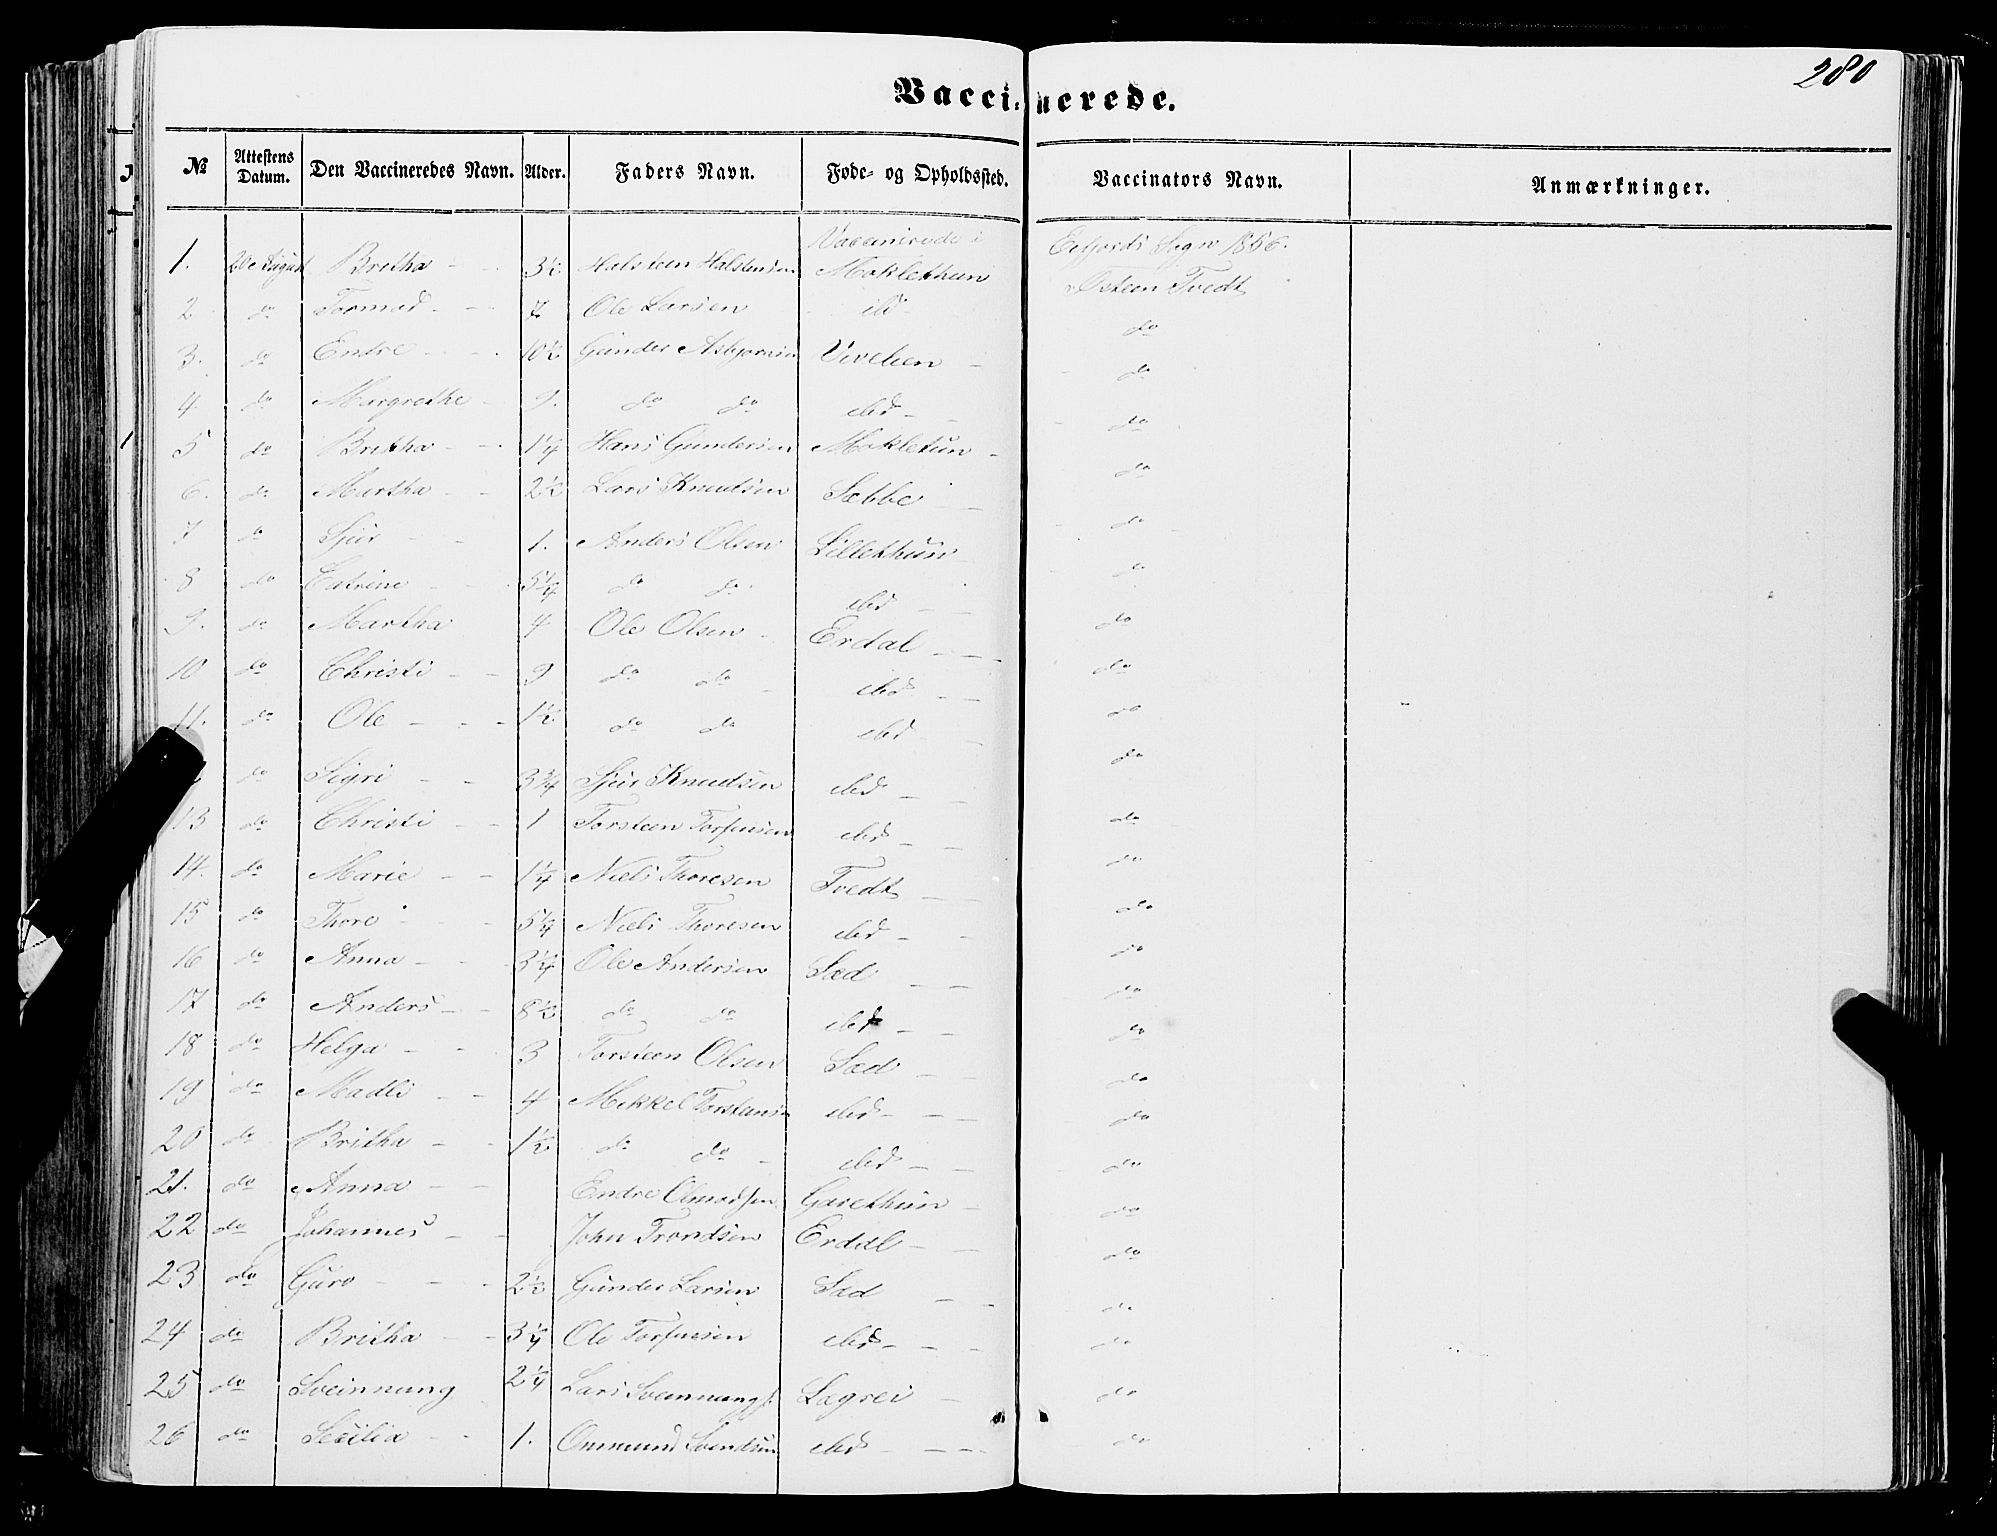 280
Vaccinerede.
№ Attestens Datum. Den Vaccineredes Navn. Alder. Faders Navn. Føde- og Opholdssted. Vaccinators Navn. Anmærkninger.
Vaccinerede i Eefjords Sogn 1856.
1. 20e August Britha 3½ Halsteen Halstensen Moklethun Østeen Tvedt
2 do Tormod 7 Ole Larsen ibd do
3. do Endre 10½ Gunder Asbjornsen Vivelien do
4 do Margrethe 9. do do ibd do
5 do Britha 1¼ Hans Gundersen Mokletun do
6. do Martha 2½ Lars Knudsen Sæbbe do
7 do Sjur 1. Anders Olsen Lillethun do
8 do Catrine 5¼ do do ibd do
9. do Martha 4 Ole Olsen Erdal do
10 do Christi 9 do do ibd do
11. do Ole 1½ do do ibd do
do Sigri 3¾ Sjur Knudsen ibd do
13 do Christi 1 Torsteen Torfinsen ibd do
14. do Marie 1¼ Niels Thoresen Tvedt do
15 do Thore 5¼ Niels Thoresen ibd do
16 do Anna 3¼ Ole Andersen Sæd do
17 do Anders 8½ do do ibd do
18 do Helga 3 Torsteen Olsen Sæd do
19 do Madli 4 Mikkel Torstens ibd do
20 do Britha 1½ do do ibd do
21. do Anna Endre Olmodsen Garethun do
22 do Johannes John Trondsen Erdal do
23 do Guro 2½ Gunder Larsen Sæd do
24 do Britha 3¼ Ole Torfinsen ibd do
25 do Sveinnung 2¼ Lars Sveinnungs. Lægrei do
26 do Secilia 1. Ommund Svendsen ibd do